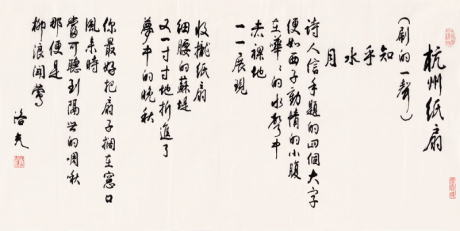 杭州紙扇
(刷的一聲)
知乎水月
詩人信手題的四個大字
便如西子動情的小腹
在嘩嘩的水聲中
赤裸地
一一展現
收攏紙扇
細腰的蘇堤
又一寸寸地折進了
夢中的晚秋
你最好把扇子擱在窗口
風來時
當可聽到隔世的啁啾
那便是
柳浪聞鶯
洛夫